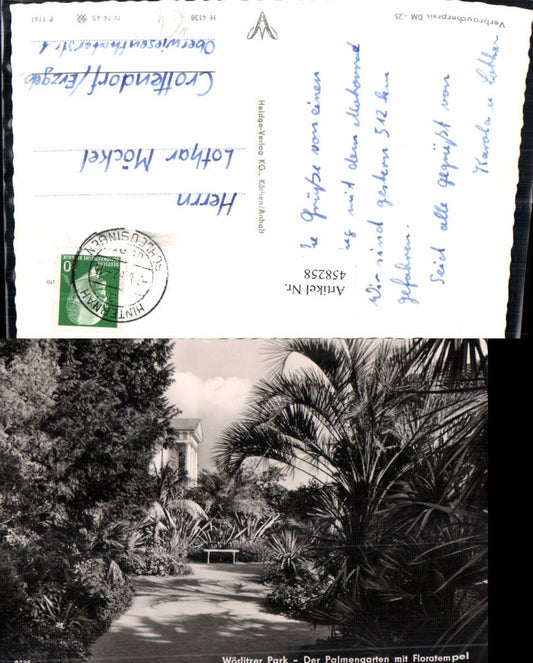 Verbraucherpreis DM -,25
Grüße von einem
mit dem Motorrad
Wir sind gestern 312 km
gefahren.
Seid alle gegrüßt von
Karola u Lothar
Artikel Nr.
458258
Heldge-Verlag KG., Köthen/Anhalt
H 4138
IV-14-45
P 1/61
DEUTSCHE
10
HINTERNAH
SCHLEUSINGEN
Herrn
Lothar Möckel
Crottendorf/Erzgeb.
Oberwiesenthalerstr.
Wörlitzer Park - Der Palmengarten mit Floratempel